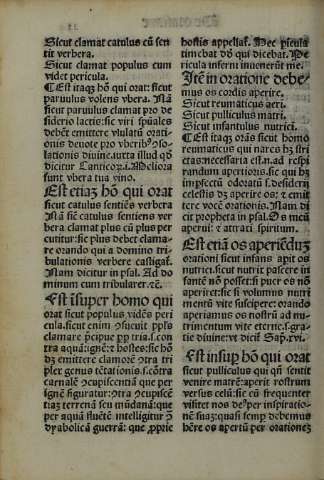 Sicut clamat catulus cū sen
tit verbera.
Sicut clamat populus cum
videt pericula.
Est itaqꝫ hō qui orat: sicut
paruulus volens vbera. Nā
sicut paruulus clamat pro de
siderio lactis: sic viri spūales
debēt emittere vlulatū orati-
onis deuote pro vberibꝰ ꝯso-
lationis diuine. iuxta illud qđ
dicitur Cantico.j. Meliora
sunt vbera tua vino.
Est etiaꝫ hō qui orat
sicut catulus sentiēs verbera
Nā sic catulus sentiens ver
bera clamat plus cū plus per
cutitur: sic plus debet clama-
re orando qui a domino tri-
bulationis verbere castigat̄.
Nam dicitur in psal. Ad do
minum cum tribularer. ⁊c̄.
Est īsuper homo qui
orat sicut populus vidēs peri
cula. sicut enim
clamare p̄cipue ꝓp tria. s. con
tra aquā: ignē: ⁊ hostes: sic hō
dꝫ emittere clamorē ꝯtra tri
plex genus tētationis. s. ꝯtra
carnalē ꝯcupiscentiā que per
ignē figuratur: ꝯtra ꝯcupiscē
tiaꝫ terrenā seu mūdanā: que
per aquā fluētē intelligitur ⁊
dyabolicā guerrā: que ꝓprie
hostis appellat̄. Nec picula
tim̄bat dō qui dicebat. Pe
ricula inferni inuenerūt me.
Itē in oratione debe-
mus os cordis aperire.
Sicut reumaticus aeri.
Sicut pulliculus matri.
Sicut infantulus nutrici.
Est itaqꝫ orās sicut homo
reumaticus qui nares hꝫ stri
ctas: necessaria est. n. ad respi
randum apertio: sic qui hꝫ im
pfectū odoratū s. desiderij
celestis dꝫ aperire os: ⁊ emit
tere vocē orationis. Nam di
cit propheta in psal. Os meū
aperui: ⁊ attraxi spiritum.
Est eniā os aperiēduꝫ
orationi sicut infans apit os
nutrici. sicut nutrix pascere in
fantē nō posset: si puer os nō
aperiret: sic si volumus nutri
mentū vite suscipere: orando
aperiamus os nostrū ad nu
trimentum vite eterne. s. gra-
tie diuine: vt dicit Sap.xvi.
Est insup hō qui orat
sicut pulliculus qui qn̄ sentit
venire matrē: aperit rostrum
versus celū: sic cū frequenter
visitet nos deꝰ per inspiratio-
nē suaꝫ: quasi semp debemus
hēre os apertū per orationeꝫ